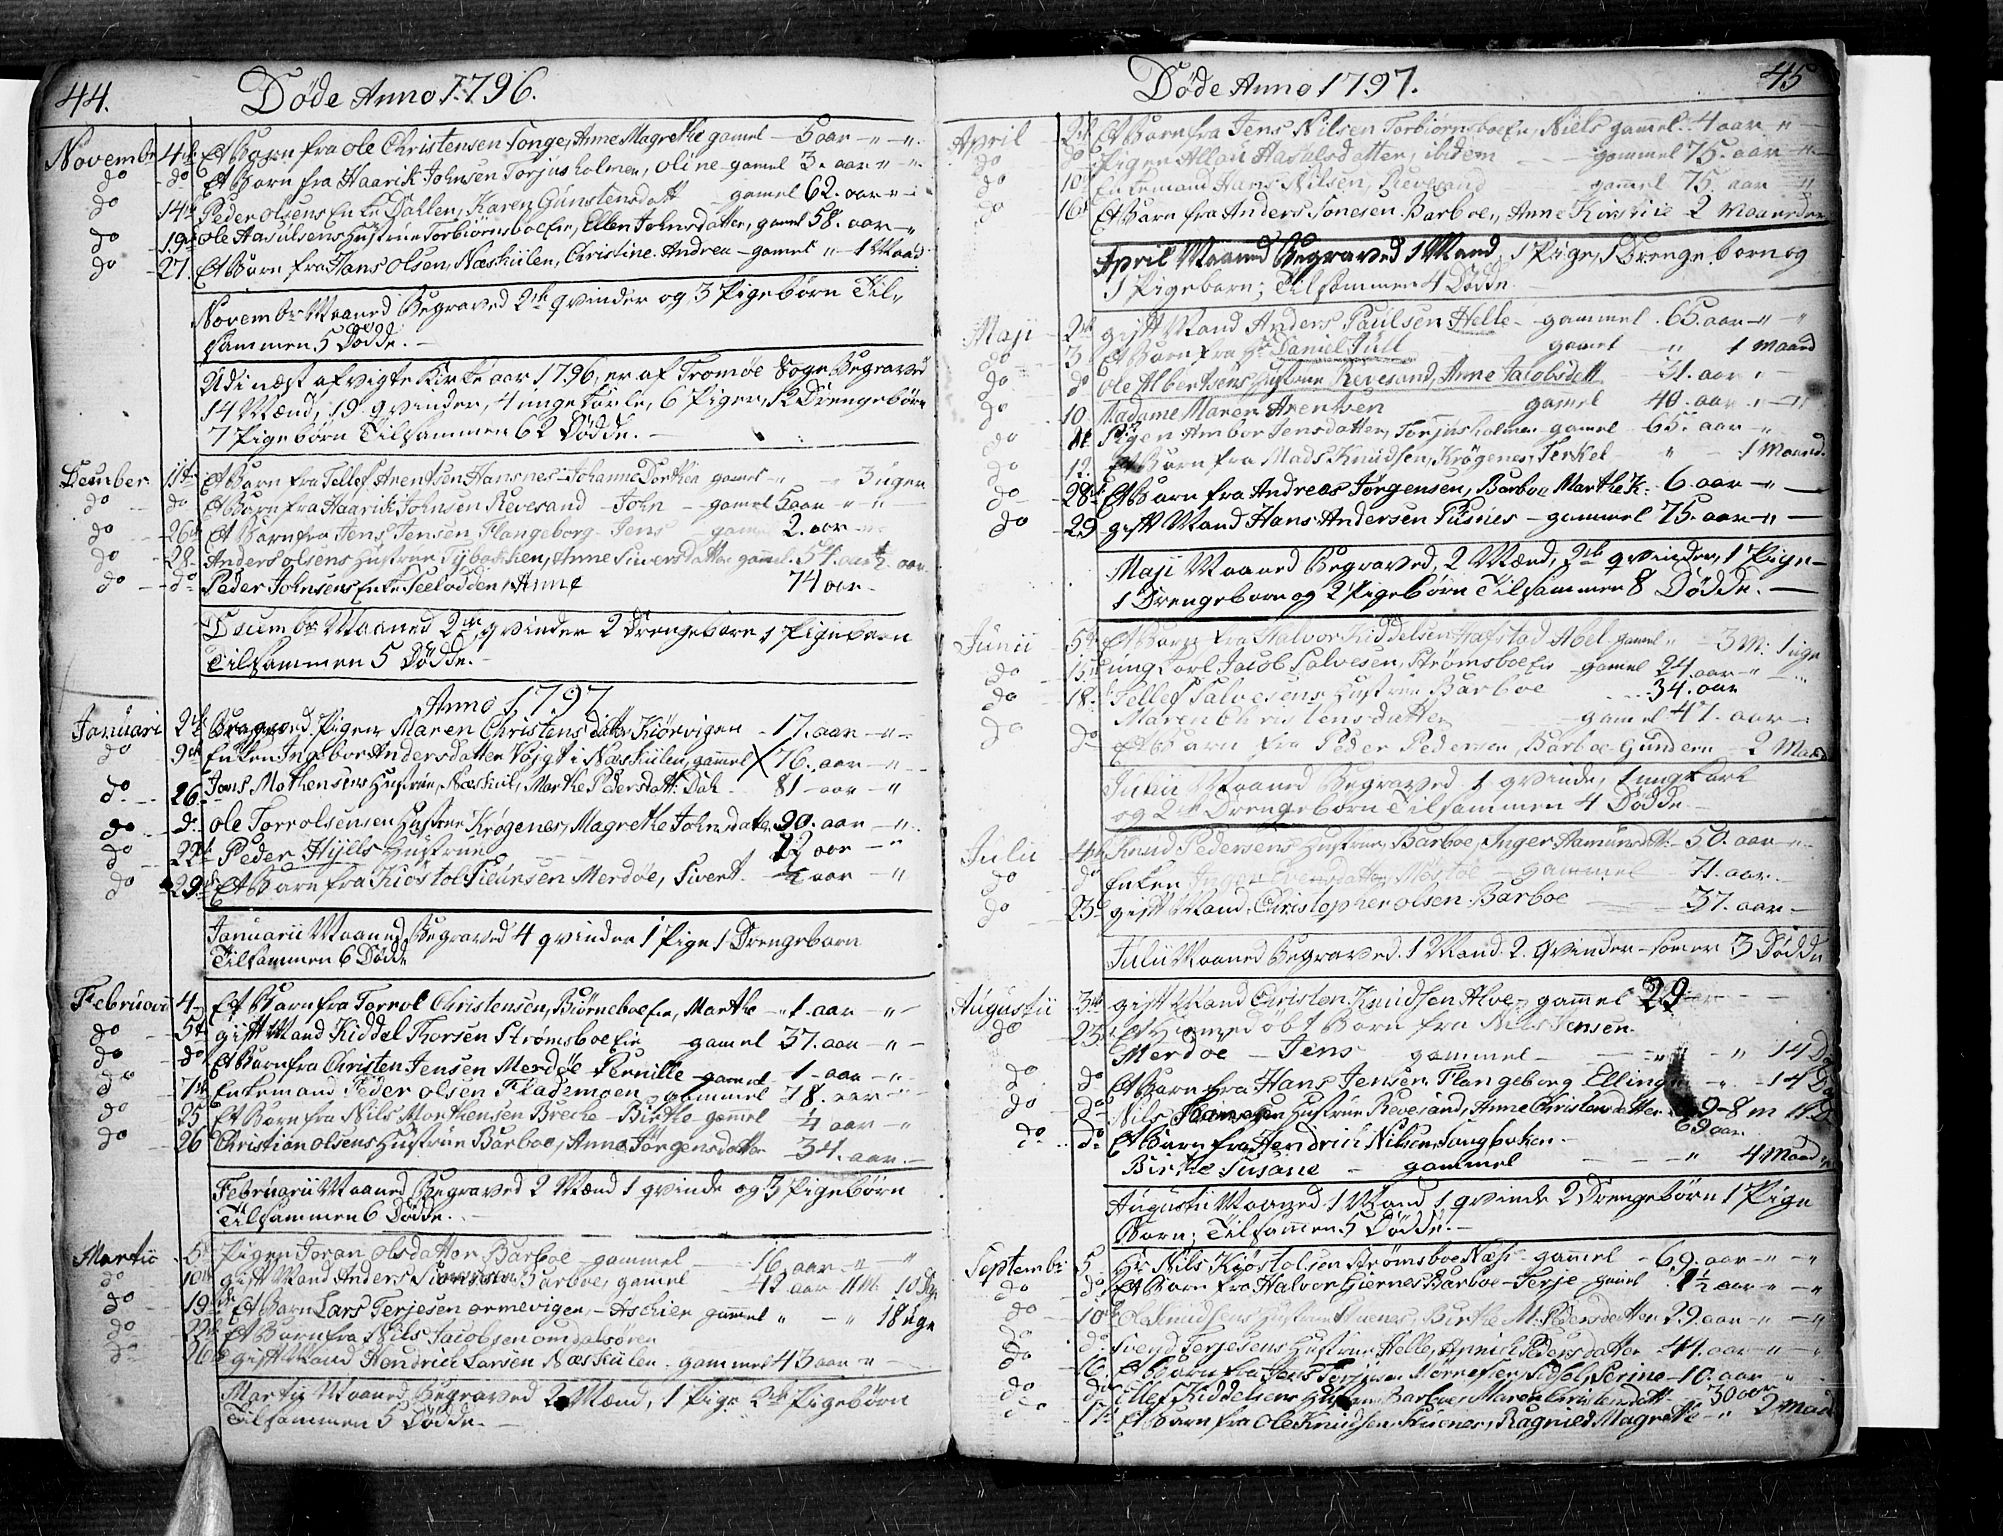 44.
Døde Anno 1796.
Novembr 4de Et Barn fra Ole Christensen Songe, Anne Magrethe gamel - 5 aar - " - ".
do - do Et Barn fra Haarik Johnsen Torjusholmen, Oline - gamel 3. aar - " - ".
do 14de Peder Olsens Enke Dahlen, Karen Gunstensdatt - gamel 62. aar - " -
do - 19de Ole Aasulsens Hustrue Torbiørnsboefie, Ellen Johnsdatter, gamel 58. aar - "
do - 27 Et Barn fra Hans Olsen, Næskiilen, Christine Andrea - gamel " - 1 Maad.
Novembr Maaned Begraved 2de qvinder og 3 Pigebørn Til-
sammen 5 Dødde. -
Udi næst afvigte Kirke aar 1796, er af Tromøe Sogn Begraved
14 Mænd, 19 qvinder, 4 unge Karle, 6 Piger, 12 Drengebørn
7 Pigebørn Tilsammen 62 Dødde. -
December 11te Et Barn fra Tellef Arentsen Hansnes - Johanne Dorthea gamel - " - 3 uger
do - do Et Barn fra Haarik Johnsen Revesand - John - gamel 5 aar - " - "
do - 26de Et Barn fra Jens Jensen Flangeborg - Jens gamel 2. aar - " -
do - 28. Anders Olsens Hustrue Tybakken, Anne Siversdatter gamel. 54. aar
do - do Peder Johnsens Enke , Anne 74 aar -
Decembr Maaned 2de qvinder 2 Drengebørn 1 Pigebarn
Tilsammen 5 Dødde. -
Anno 1797
Januari 2de Begraved Pigen Maren Christensdatter Kiørvigen - 17. aar - " -
do 9de Enken Ingebor Andersdatter Vojgt i Næskiilen, gammel 76. aar - " -
do - 26. Jens Mathensens Hustrue, Næskiil, Marthe Pedersdatt: Dah 81 - aar - "
do - do Ole Torrolsensen Hustrue Krøgenes, Magrethe Johnsdatter 90. aar - " -
do 22de Peder Hjells Hustrue 72 aar - "
do 29de Et Barn fra Kiøstol Sieursen Merdøe, Sivert - aar - "
Januarii Maaned Begraved 4 qvinder 1 Pige 1 Drengebarn
Tilsammen 6 Dødde
Februarii 4 - Et Barn fra Torrol Christensen, Biørneboefie, Marthe - 1. aar - "
do - 5te gift Mand Kiddel Thorsen Strømsboefie gamel 37. aar - " -
do - do Et Barn fra Christen Jensen Merdöe Pernille - gamel - 1 - aar - " -
do - 7de Enkemand Peder Olsen Flademoen gammel 78. aar - "
do 25 Et Barn fra Nils Mathensen Brecke - Birthe - gamel 1/4 aar - "
do - 26 Christian Olsens Hustrue Barboe, Anne Jørgensdatter - 34. aar. -
Februarii Maaned Begraved 2 Mænd 1 qvinde og 3 Pigebørn
Tilsammen 6 Dødde. -
Martii 5te Pigen Joran Olsdatter Barboe gammel - 16 aar - " - "
do 10de gift Mand Anders Barboe, gamel - 42 aar 11 M. 10 Dge
do - 19de Et Barn Lars Terjesen ormevigen - Aschier gammel " - " 18 uge
do - 22de Et Barn fra Nils Jacobsen omdalsøren
do - 26de gift Mand Hendrich Larsen Næskiilen - gammel 43 aar - " -
Martii Maaned Begraved 2 Mænd, 1 Pige 2de Pigebørn
Tilsammen 5 Dødde. -
45
Døde Anno 1797.
April 2de Et Barn fra Jens Nilsen Torbiørnsboefie, Niels gammel. 4 aar "
do do Pigen Allou Haskelsdatter, ibidem - gammel 75. aar - " -
do 10de Enkemand Hans Nilsen, Revesand gammel 75. aar - "
do - 16de Et Barn fra Anders Sonesen Barboe, Anne Kirstine 2 Maaneder
April Maaned Begraved 1 Mand, 1 Pige, 1 Drengebarn og
1 Pigebarn; Tilsammen 4 Dødde.
Maji - 2de gift Mand Anders Paulsen Helle - gammel. 65. aar - " - "
do - 3. Et Barn fra Sr Daniel Jull gamel - " 1 Maand
do do Ole Albertsens Hustrue Revesand, Anne Jacobsdatt 31. aar "
do - 10. Madame Maren Arentsen gamel 40. aar " - "
do 11. Pigen Ambor Jensdatter, Torjusholmen - gammel 65. aar - "
do 12. Et Barn fra Mads Knudsen, Krøgenes, Terkel - " - 1 Maand.
do - 28de Et Barn fra Andreas Jørgensen, Barboe Marthe K: 6. aar - " -
do - 29 gift Mand Hans Andersen Pusnes - gammel 75. aar - " -
Maji Maaned Begraved, 2 Mænd, 2de qvinder, 1 Pige -
1 Drengebarn og 2 Pigebørn Tilsammen 8 Dødde. -
Junii - 5te Et Barn fra Halvor Kiddelsen Hafstad Abel gamel " - 3 M: 1 uge
do - 15de ung Karl Jacob Salvesen, Strømsboefie - gamel 24. aar - " -
do - 18. Tellef Salvesens Hustrue Barboe - 34. aar
Maren Christensdatter gamel 47. aar -
do - do Et Barn fra Peder Pedersen, Barboe - Gunder - 2 Maand
Junii Maaned Begraved 1 qvinde, 1 ung Karl
og 2de Drengebørn Tilsammen 4 Dødde -
Julii - 4de Knud Pedersens Hustrue, Barboe, Inger Aamunsdtt - 50. aar - " -
do - do Enken Inger Evensdatter - gammel 71. aar. -
do - 23de gift Mand. Christopher Olsen Barboe - 37. aar -
Julii Maaned Begraved. 1 Mand 2. qvinder - som er 3 Dødde
Augustii - 3de gift Mand Christen Knudsen Alve - gammel 29
do - 23. Et Hiemedøbt Barn fra Nils Jensen
Merdöe - Jens gammel - " - " 14 Da
do do Et Barn fra Hans Jensen Flangeborg Elling - " - 14 D
do - do Nils Hustrue Revesand, Anne Christensdatter 9 - 8 m 11 D
69 aar
do - do Et Barn fra Hendrich Nilsen Sangbeken -
Birthe Susane - gammel - " 4 Maand
Augustii Maaned 1 Mand 1 qvinde 2 Drengebørn 1 Pige
Barn; Tilsammen 5 Dødde. -
Septembr 5. Hr Nils Kiøstolsen Strømsboe Næss - gammel - 69. aar - " - "
do - do Et Barn fra Halvor Barboe - Terje - gamel 1 1/2 aar - " - "
do - 10de Ole Knudsens Hustrue Stuenes, Birthe M: Pedersdatter 29. aar - " - "
do - do Svend Terjesens Hustrue Helle, Anniche Pedersdatter - 44. aar - " -
do - 16. Et Barn fra Jens Terjesen - 10. aar - "
do do Ellef Kiddelsens Hustrue Barboe, Maren Christensdatt - 30 aar
do - 17de Et Barn fra Ole Knudsen, Stuenes, Ragnild Magrethe - " 2 Mad